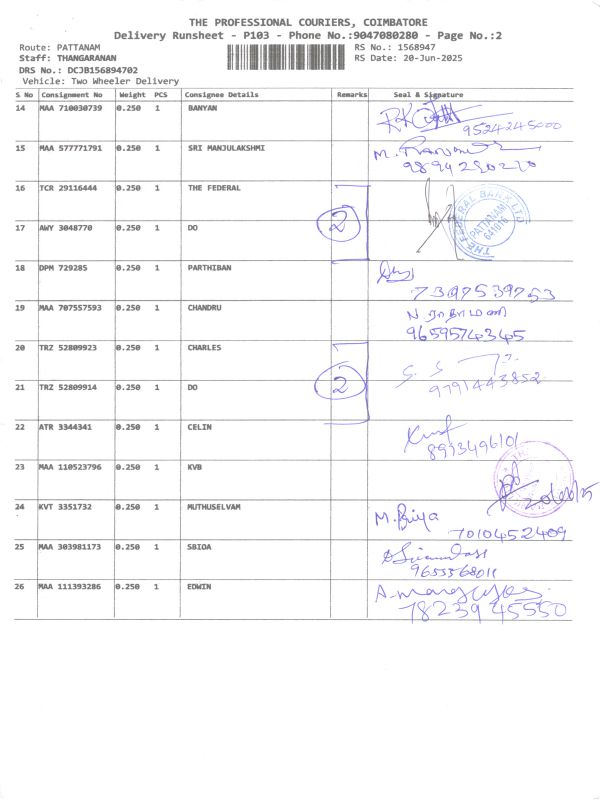 THE PROFESSIONAL COURIERS, COIMBATORE
Delivery Runsheet - P103 - Phone No.:9047080280 - Page No.:2
Route: PATTANAM RS No.: 1568947
Staff: THANGARANAN RS Date: 20-Jun-2025
DRS No.: DCJB156894702
Vehicle: Two Wheeler Delivery
S No Consignment No Weight PCS Consignee Details Remarks Seal & Signature
14 MAA 710030739 0.250 1 BANYAN
9524245000
15 MAA 577771791 0.250 1 SRI MANJULAKSHMI M.
9894230270
16 TCR 29116444 0.250 1 THE FEDERAL
2 THE FEDERAL BANK LTD PATTANAM 641016
17 AWY 3048770 0.250 1 DO
18 DPM 729285 0.250 1 PARTHIBAN
7397539753
19 MAA 707557593 0.250 1 CHANDRU N.
9659574345
20 TRZ 52809923 0.250 1 CHARLES
2 9791443852
21 TRZ 52809914 0.250 1 DO
22 ATR 3344341 0.250 1 CELIN
8913496101
23 MAA 110523796 0.250 1 KVB
24 KVT 3351732 0.250 1 MUTHUSELVAM M. Priya
7010452409
25 MAA 303981173 0.250 1 SBIOA
9655568011
26 MAA 111393286 0.250 1 EDWIN
7823945550